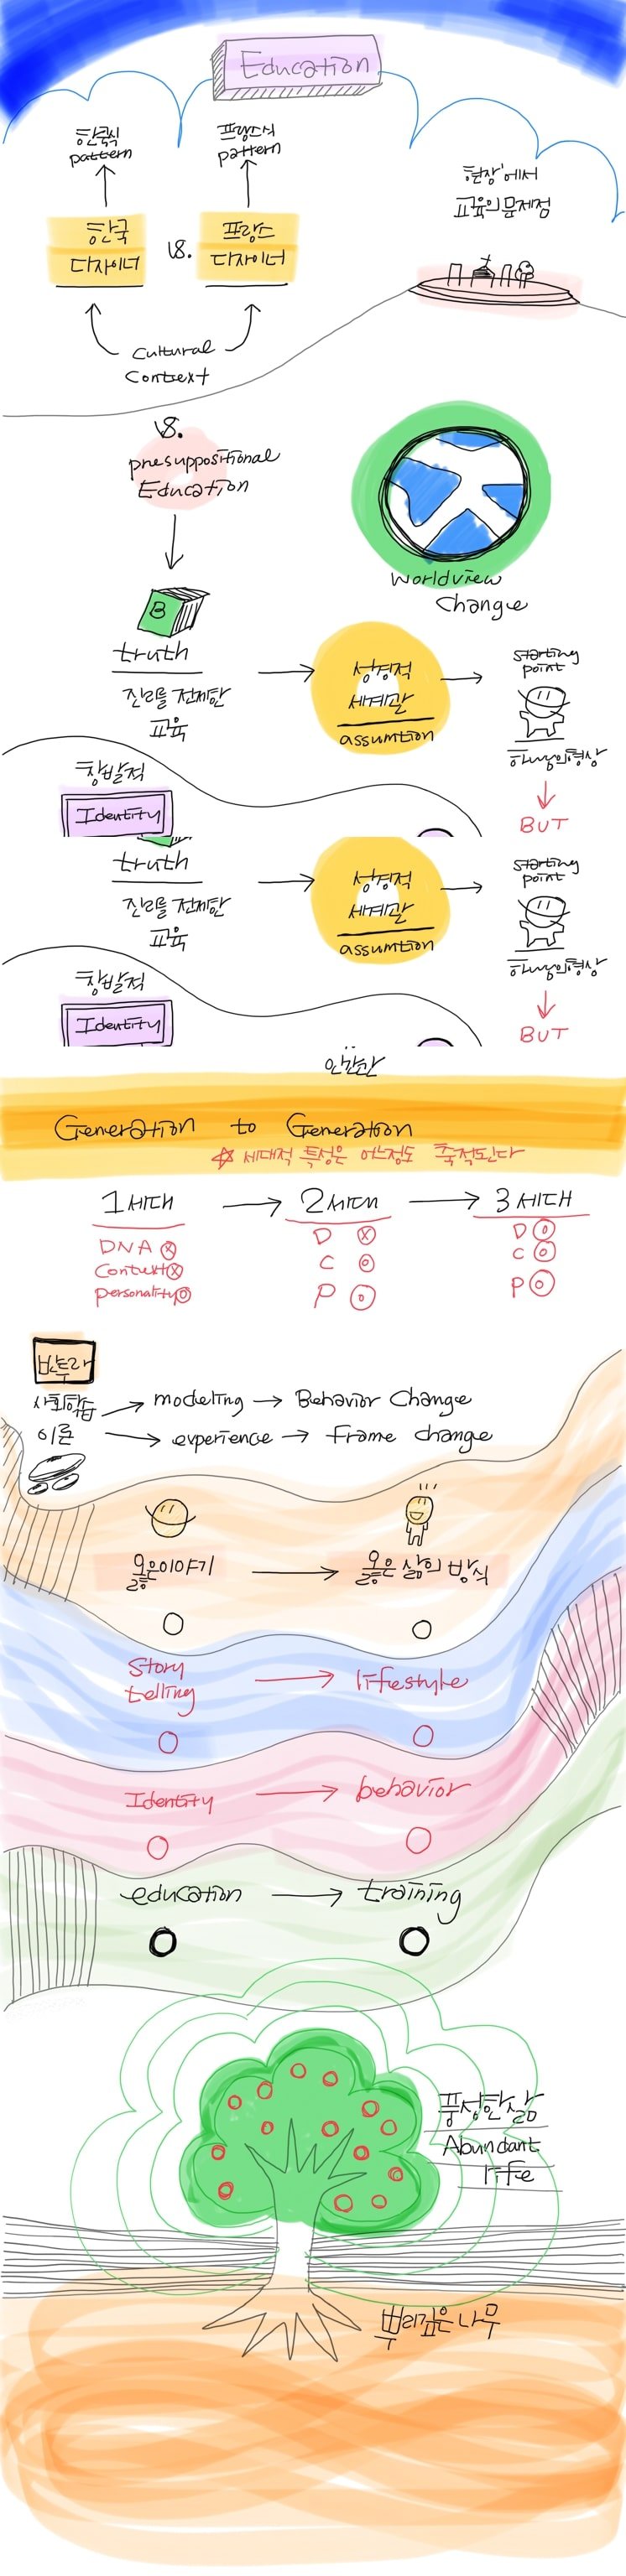 Education
한국식
pattern
프랑스식
pattern
'현장'에서
교육의 문제점
한국
디자이너
vs.
프랑스
디자이너
Cultural
Context
vs.
presuppositional
Education
Worldview
Change
B
truth
진리를 전제한
교육
성경적
세계관
assumtion
starting
point
하나님의 형상
BUT
창발적
Identity
truth
진리를 전제한
교육
성경적
세계관
assumtion
starting
point
하나님의 형상
BUT
창발적
Identity
인간관
Generation to Generation
☆ 세대적 특성은 어느정도 축적된다
1세대 → 2세대 → 3세대
DNA ⓧ
Context ⓧ
personality ⓞ
D ⓧ
C ⓞ
P ⓞ
D ⓞ
C ⓞ
P ⓞ
반두라
사회학습
이론
modeling → Behavior Change
experience → Frame change
옳은 이야기 → 옳은 삶의 방식
Story
telling → lifestyle
Identity → behavior
education → training
풍성한 삶
Abundant
life
뿌리깊은 나무